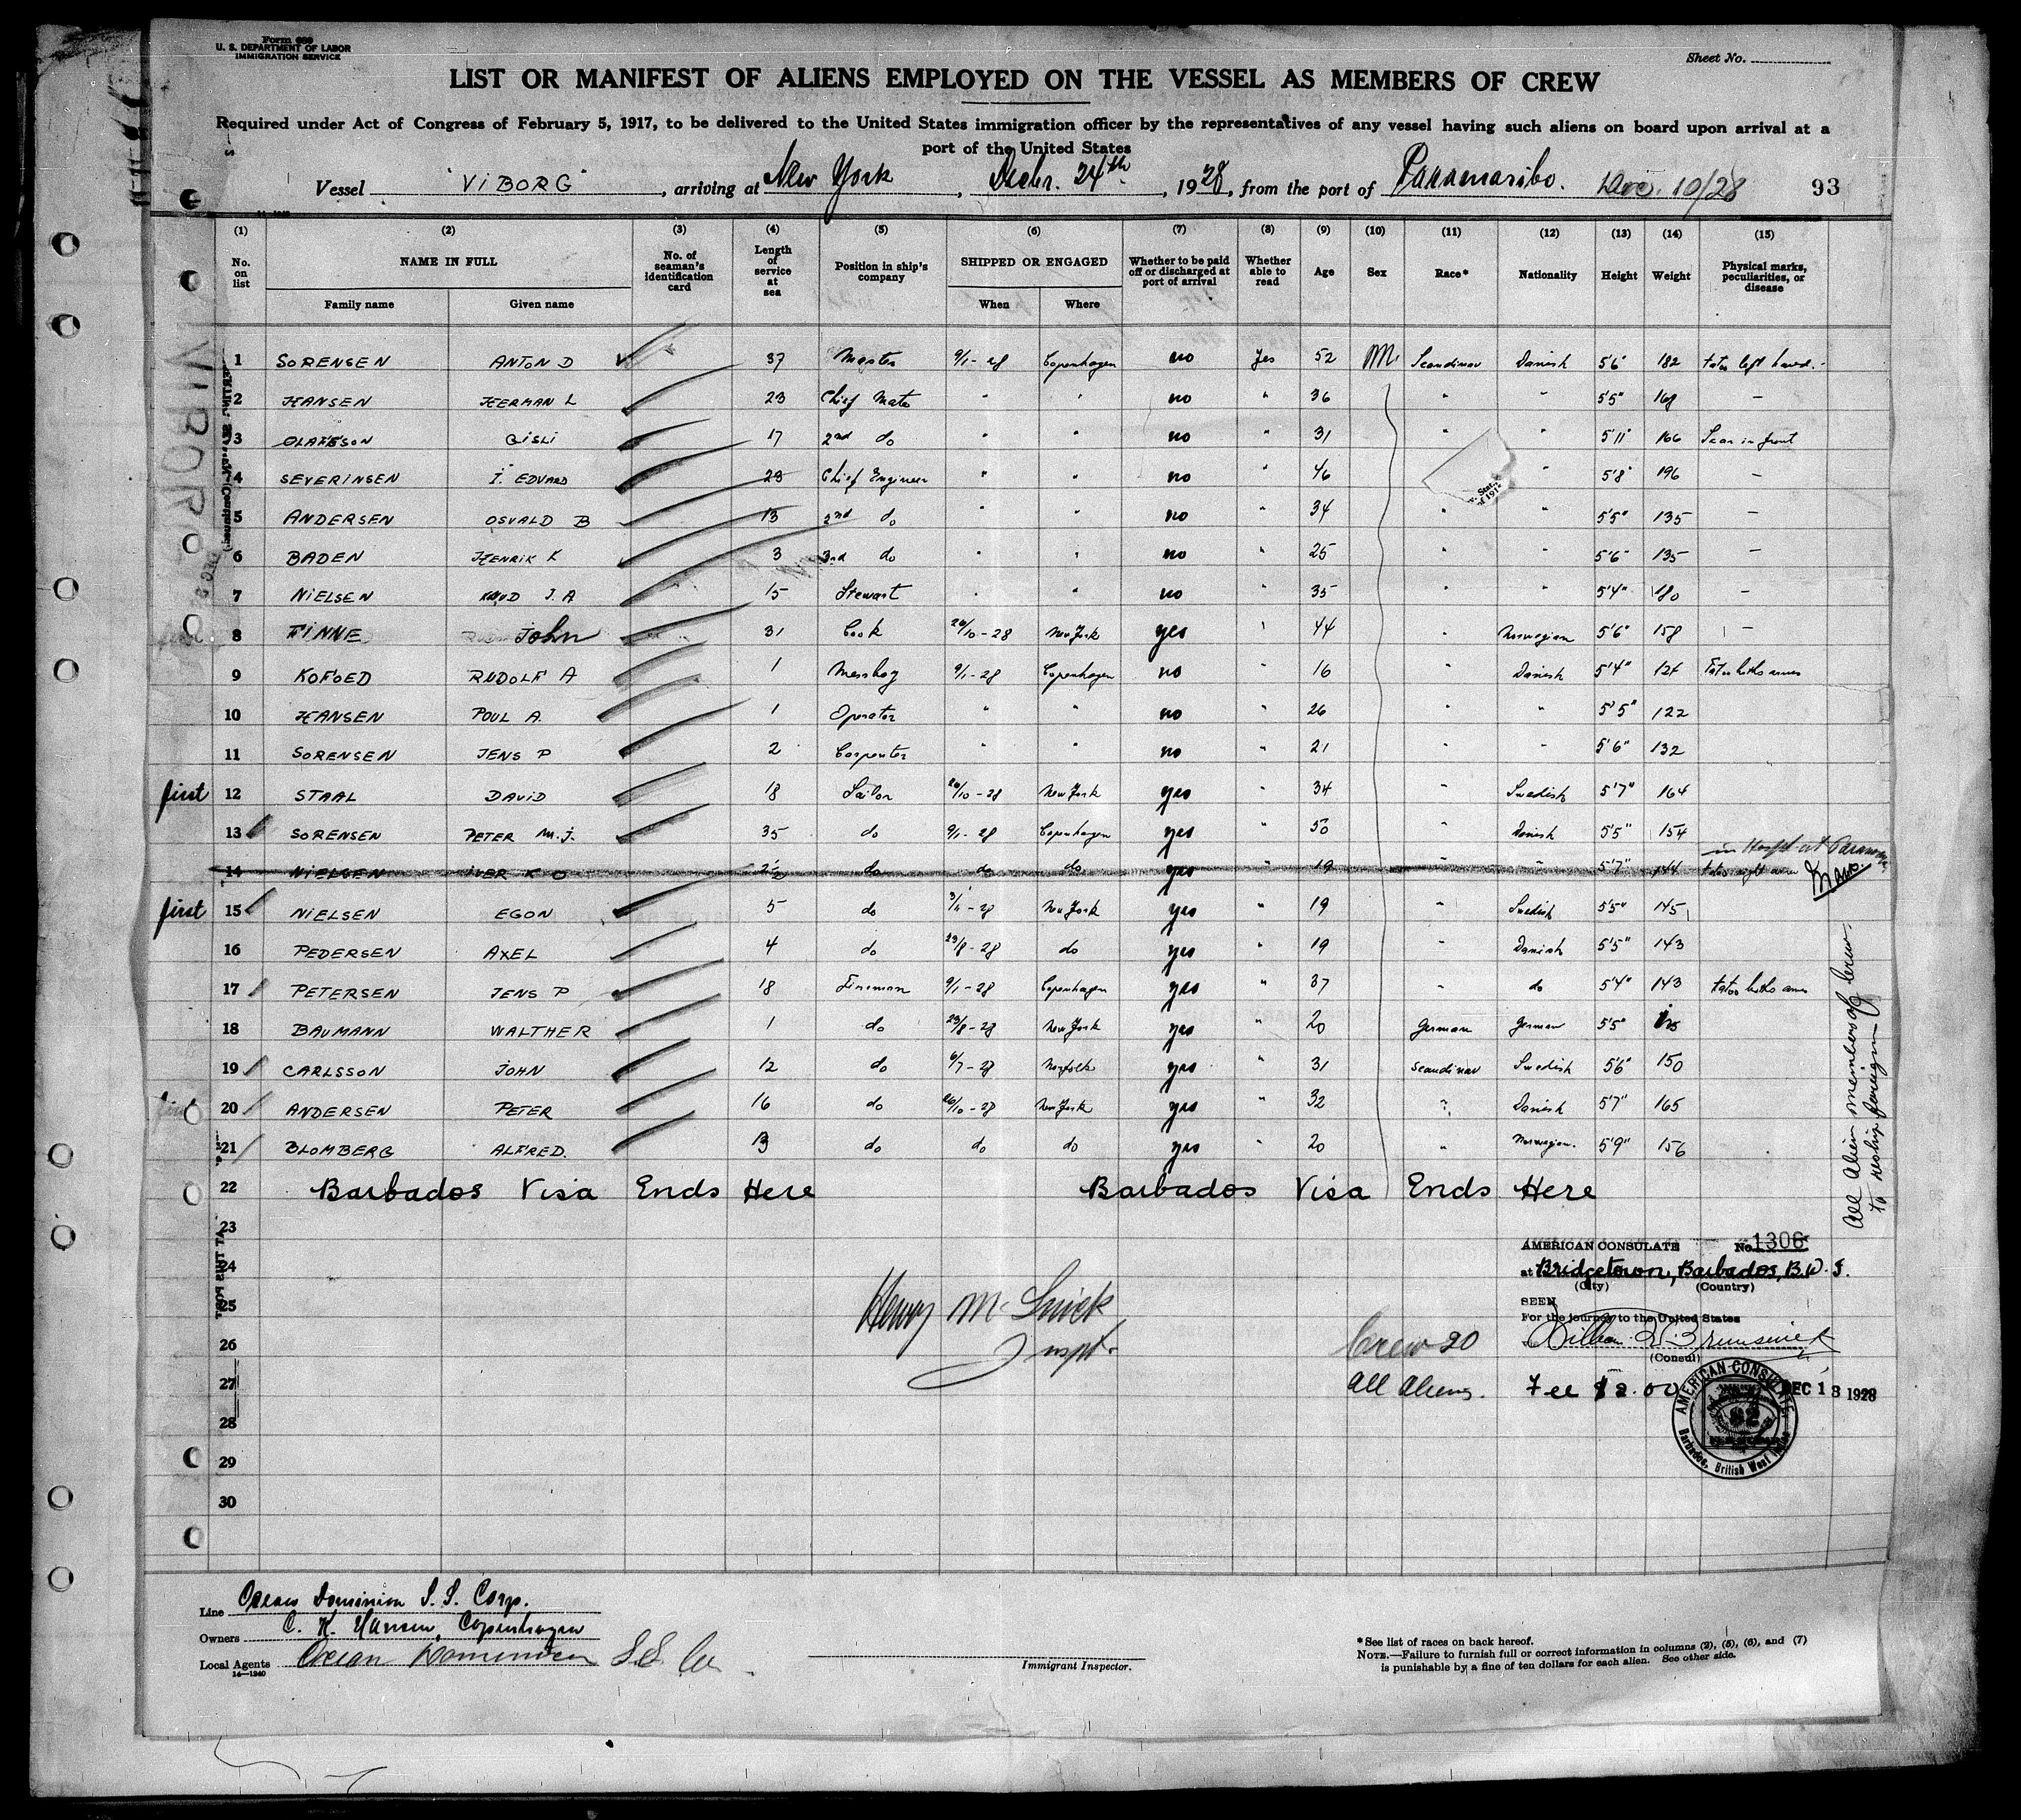 Form 689
U. S. DEPARTMENT OF LABOR
IMMIGRATION SERVICE
Sheet No.
LIST OR MANIFEST OF ALIENS EMPLOYED ON THE VESSEL AS MEMBERS OF CREW
Required under Act of Congress of February 5, 1917, to be delivered to the United States immigration officer by the representatives of any vessel having such aliens on board upon arrival at a
port of the United States
Vessel "VIBORG", arriving at New York, Decbr. 24th, 1928, from the port of Paramaribo. Dec. 10/28 93
(1) (2) (3) (4) (5) (6) (7) (8) (9) (10) (11) (12) (13) (14) (15)
No. on list NAME IN FULL Family name Given name No. of seaman's identification card Length of service at sea Position in ship's company SHIPPED OR ENGAGED When Where Whether to be paid off or discharged at port of arrival Whether able to read Age Sex Race* Nationality Height Weight Physical marks, peculiarities, or disease
1 SORENSEN ANTON D 37 Master 9/1-28 Copenhagen no Yes 52 M Scandinav Danish 5'6" 182 tatoo left hand.-
2 HANSEN HERMAN L 23 Chief Mate " " no " 36 " " 5'5" 168 -
3 OLAFSSON GISLI 17 2nd do " " no " 31 " " 5'11" 166 Scar in front
4 SEVERINSEN I. EDVARD 29 Chief Engineer " " no " 46 " 5'8" 196 -
5 ANDERSEN OSVALD B 13 2nd do " " no " 34 " " 5'5" 135 -
6 BADEN HENRIK K 3 3rd do " " no " 25 " " 5'6" 135 -
7 NIELSEN KNUD J.A 15 Stewart " " no " 35 " " 5'4" 180 -
8 FINNE John 31 Cook 26/10-28 New York yes " 44 " Norwegian 5'6" 158 -
9 KOFOED RUDOLF A 1 Messboy 9/1-28 Copenhagen no " 16 " Danish 5'4" 124 Tatoo boths armes
10 HANSEN POUL A. 1 Operator " " no " 26 " " 5'5" 122
11 SORENSEN JENS P 2 Carpenter " " no " 21 " " 5'6" 132
first 12 STAAL DAVID 18 Sailor 26/10-28 New York yes " 34 " Swedish 5'7" 164
13 SORENSEN PETER M.J. 35 do 9/1-28 Copenhagen yes " 50 " Danish 5'5" 154
in Hospt at
14 NIELSEN IVER K O 2½ do do do yes " 19 " " 5'7" 144 tatoo right arm
first 15 NIELSEN EGON 5 do New York yes " 19 " Swedish 5'5" 145
16 PEDERSEN AXEL 4 do 23/8-28 do yes " 19 " Danish 5'5" 143
17 PETERSEN JENS P 18 Fireman 9/1-28 Copenhagen yes " 37 " do 5'4" 143 tatoo boths arms
18 BAUMANN WALTHER 1 do 23/8-28 New York yes " 20 German German 5'5"
19 CARLSSON JOHN 12 do 6/7-28 Norfolk yes " 31 Scandinav Swedish 5'6" 150
first 20 ANDERSEN PETER 16 do 26/10-28 New York yes " 32 " Danish 5'7" 165
21 BLOMBERG ALFRED. 3 do do do yes " 20 " Norwegian. 5'9" 156
22 Barbados Visa Ends Here Barbados Visa Ends Here
23
24
25
26
27
28
29
30
All Alien members of crew.
to reship foreign
AMERICAN CONSULATE No. 1306
at Bridgetown, Barbados, B.W.I.
(City) (Country)
SEEN
For the journey to the United States
(Consul)
Fee $2.00 DEC 13 1928
AMERICAN CONSULATE
82
Barbados, British West Indies
Henry
Inspt.
Crew 20
All Aliens.
VIBORG
Line Ocean Dominion S.S. Corp.
Owners C. K. Hansen, Copenhagen
Local Agents Ocean Dominion S.S. Co.
14-1240
Immigrant Inspector.
*See list of races on back hereof.
NOTE.—Failure to furnish full or correct information in columns (2), (5), (6), and (7)
is punishable by a fine of ten dollars for each alien. See other side.